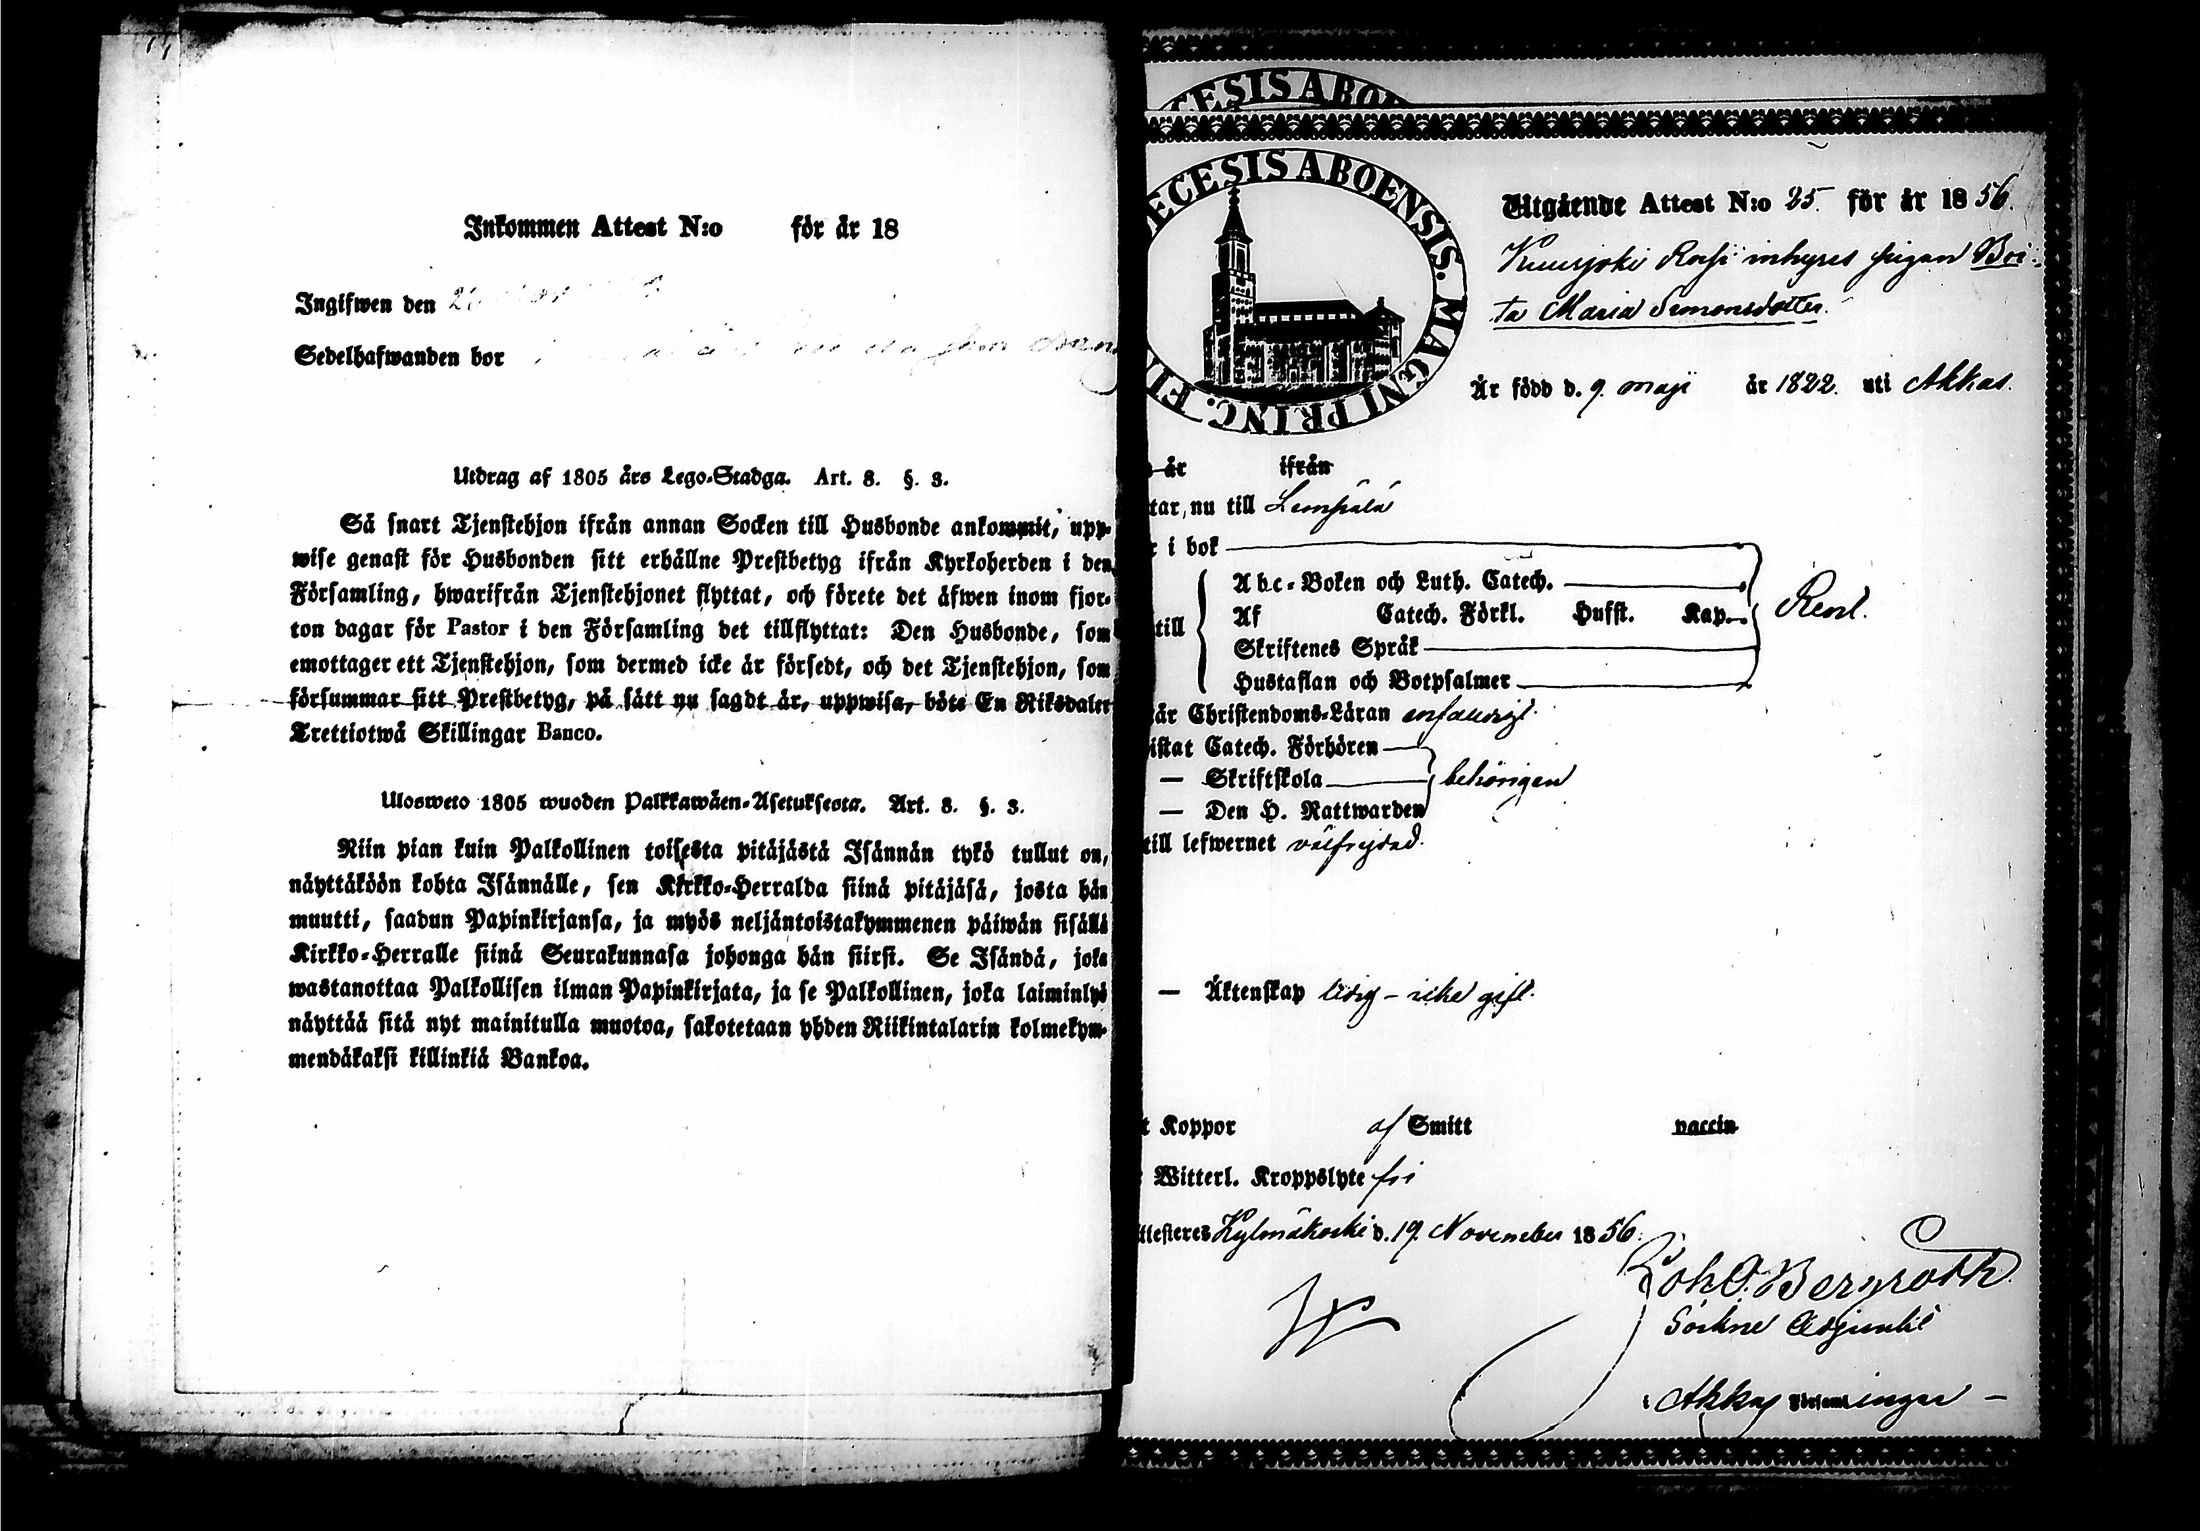 Inkommen Attest N:o för år 18
Ingifwen den
Sedelhafwanden bor
Utdrag af 1805 års Lego-Stadga. Art. 8. §. 3.
Så snart Tjenstehjon ifrån annan Socken till Husbonde ankommit, upp-
wise genast för Husbonden sitt erhållne Prestbetyg ifrån Kyrkoherden i den
Församling, hwarifrån Tjenstehjonet flyttat, och förete det äfwen inom fjor-
ton dagar för Pastor i den Församling det tillflyttat: Den Husbonde, som
emottager ett Tjenstehjon, som dermed icke är försedt, och det Tjenstehjon, som
försummar sitt Prestbetyg, på sätt nu sagdt är, uppwisa, böte En Riksdaler
Trettiotwå Skillingar Banco.
Ulosweto 1805 wuoden Palkkawäen-Asetuksesta. Art. 8. §. 3.
Niin pian kuin Palkollinen toisesta pitäjästä Isännän tykö tullut on,
näyttäköön kohta Isännälle, sen Kirkko-Herralda siinä pitäjäsä, josta hän
muutti, saadun Papinkirjansa, ja myös neljäntoistakymmenen päiwän sisällä
Kirkko-Herralle siinä Seurakunnasa johonga hän siirsi. Se Isändä, joka
wastanottaa Palkollisen ilman Papinkirjata, ja se Palkollinen, joka laiminlyö
näyttää sitä nyt mainitulla muotoa, sakotetaan yhden Riikintalarin kolmekym-
mendäkaksi killinkiä Bankoa.
CESIS ABO
ECESIS ABOENSIS. MAGNI PRINC. FI
Utgående Attest N:o 25. för år 1856.
Kuurjoki inhyses pigan Bri-
ta Maria Simonsdotter.
Är född d. 9. maji år 1822. uti Akkas.
år ifrån
tar, nu till Lempälä
r i bok
Abc-Boken och Luth. Catech.
till Af Catech. Förkl. Hufst. Kap. Rent.
Skriftenes Språk
Hustaflan och Botpsalmer
år Christendoms-Läran enfaldigt.
istat Catech. Förhören
— Skriftskola behörigen
— Den H. Nattwarden
till lefwernet välfrejdad.
— Äktenskap ledig - icke gift.
t Koppor af Smitt vaccin
Witterl. Kroppslyte fri
ttesteres Kylmäkoski d. 19. November 1856.
Joh O. Bergroth
Sockne Adjunkt
i Akkas Församlingar —